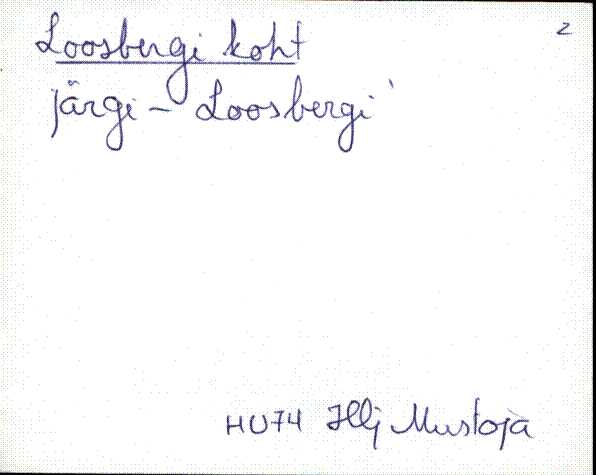 2
Loosbergi koht
järgi – Loosbergi`
HU74 Hlj Mustoja